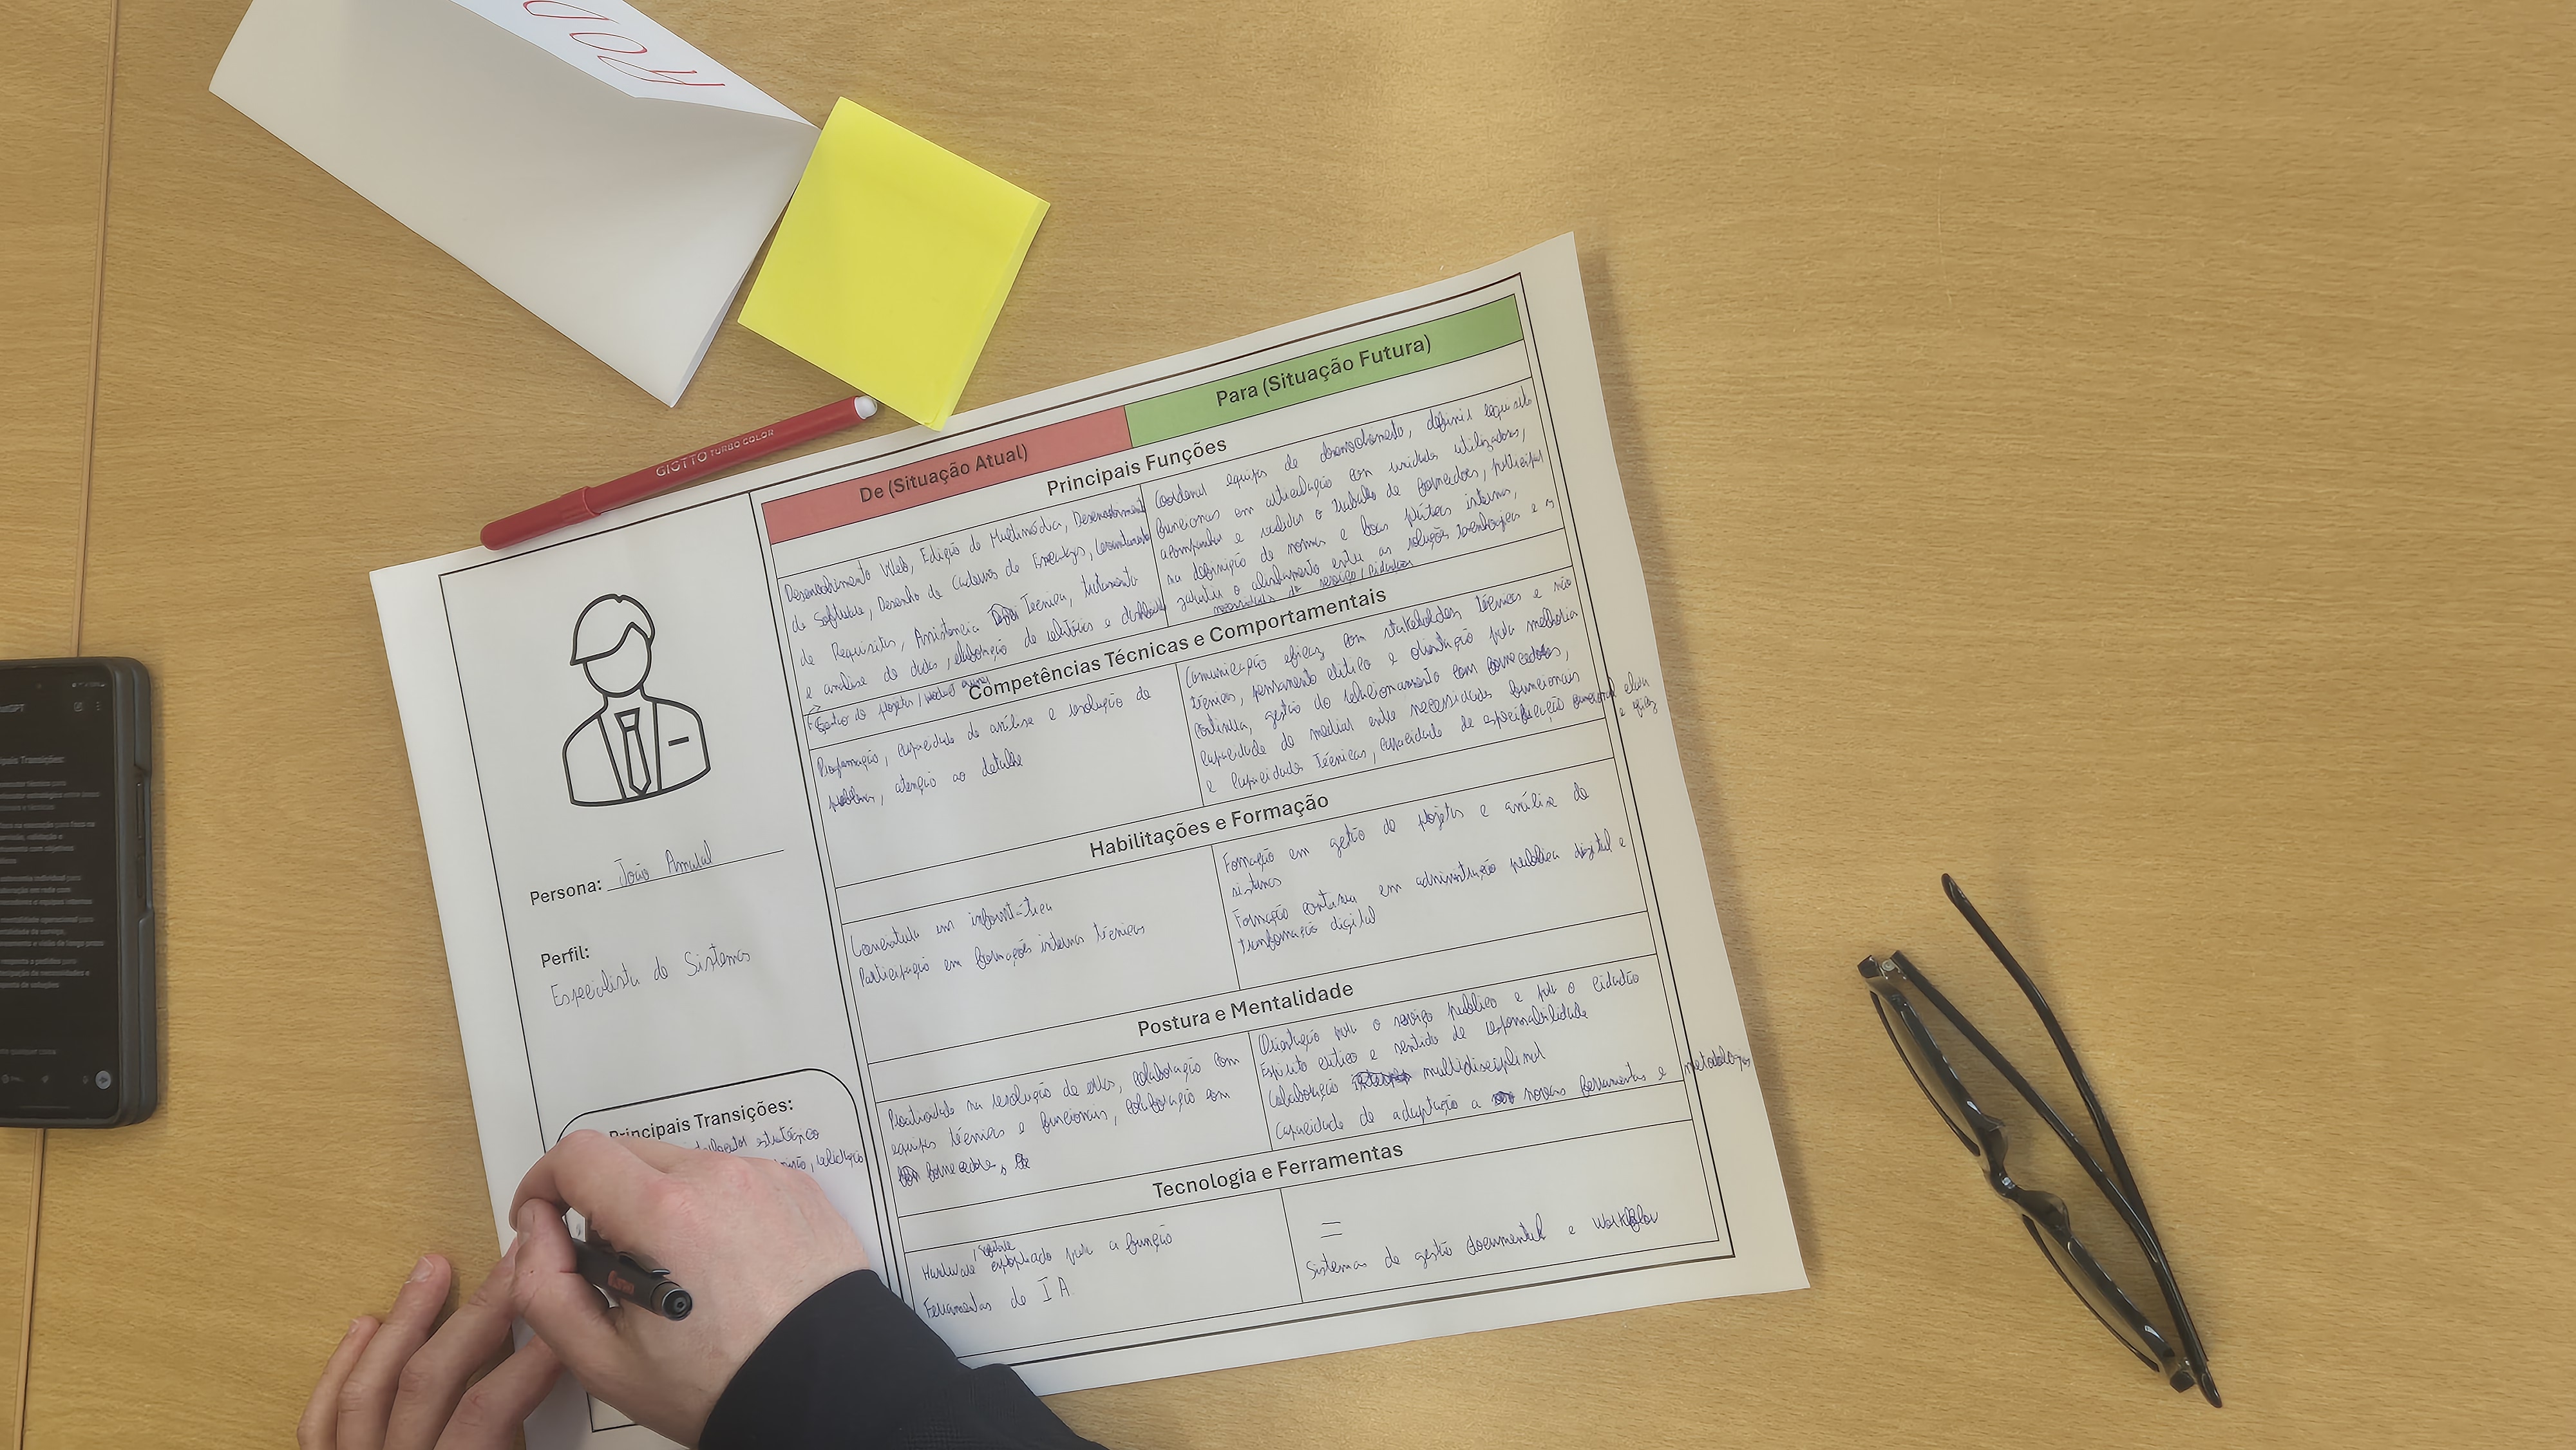 ROD
GIOTTO TURBO COLOR
De (Situação Atual)
Para (Situação Futura)
Principais Funções
Desenvolvimento Web, Edição de Multimédia, Desenvolvimento
de Software, Desenho de Cadernos de Encargos, Levantamento
de Requisitos, Assistencia Tecnica, tratamento
e análise de dados, elaboração de relatórios e dashboards
Gestão de projetos /
Coordenar equipas de desenvolvimento, definir requisitos
funcionais em articulação com unidades utilizadoras,
acompanhar e validar o trabalho de fornecedores, participar
na definição de normas e boas práticas internas,
garantir o alinhamento entre as soluções tecnológicas e as
necessidades do serviço / cidadãos
Competências Técnicas e Comportamentais
Programação, capacidade de análise e resolução de
problemas, atenção ao detalhe
Comunicação eficaz com stakeholders técnicos e não
técnicos, pensamento crítico e orientação para melhoria
contínua, gestão do relacionamento com fornecedores,
capacidade de mediar entre necessidades funcionais
e capacidades técnicas, capacidade de especificação funcional clara
e eficaz
Habilitações e Formação
Licenciatura em informática
Participação em formações internas técnicas
Formação em gestão de projetos e análise de
sistemas
Formação contínua em administração pública digital e
transformação digital
Postura e Mentalidade
Proatividade na resolução de erros, colaboração com
equipas técnicas e funcionais, colaboração com
fornecedores,
Orientação para o serviço público e para o cidadão
Espírito crítico e sentido de responsabilidade
Colaboração multidisciplinar
Capacidade de adaptação a novas ferramentas e metodologias
Tecnologia e Ferramentas
Hardware / software apropriado para a função
Ferramentas de IA
=
Sistemas de gestão documental e workflow
Persona: João Amaral
Perfil:
Especialista de Sistemas
Principais Transições:
estratégico
validação